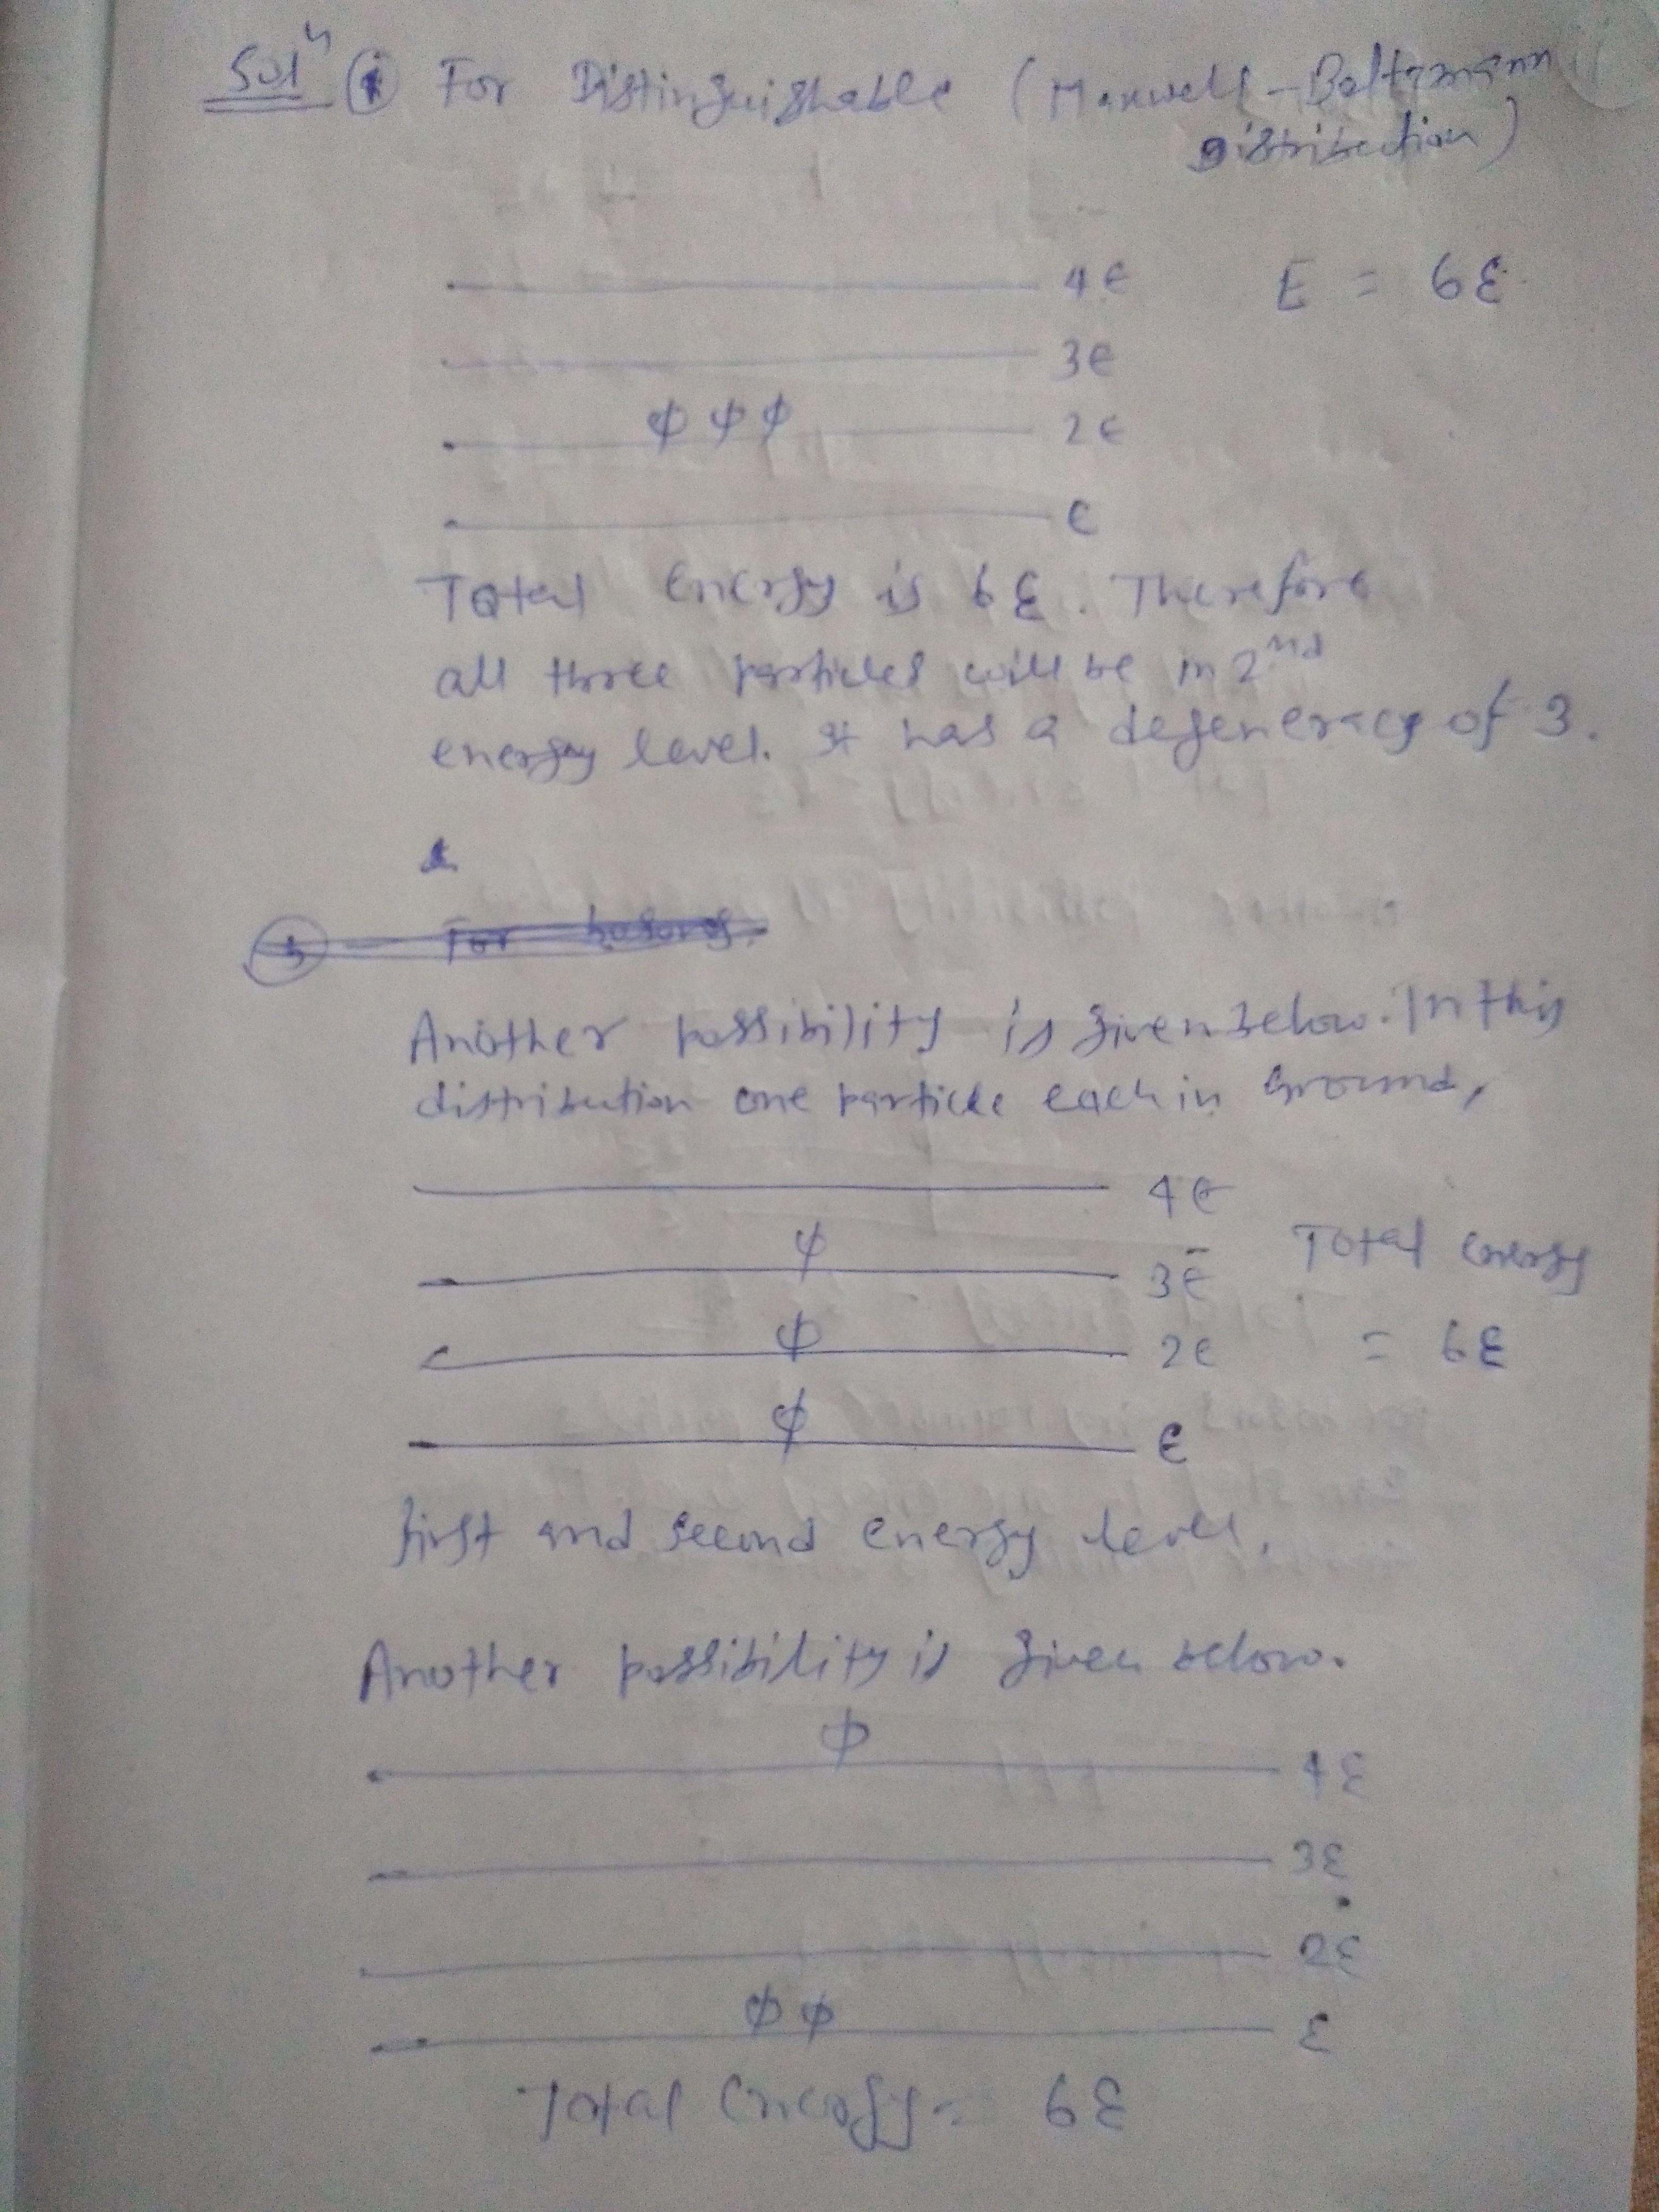 Solⁿ (i) For Distinguishable (Maxwell-Boltzmann
Distribution)
4ϵ E = 6Ɛ
3ϵ
ϕ ϕ ϕ 2ϵ
ϵ
Total energy is 6Ɛ. Therefore
all three particles will be in 2nd
energy level. It has a degeneracy of 3.
For bosons.
Another possibility is given below. In this
distribution one particle each in Ground,
4ϵ
ϕ 3ϵ Total energy
ϕ 2ϵ = 6Ɛ
ϕ ϵ
first and second energy level.
Another possibility is given below.
ϕ 4Ɛ
3Ɛ
2Ɛ
ϕ ϕ Ɛ
Total Energy = 6Ɛ